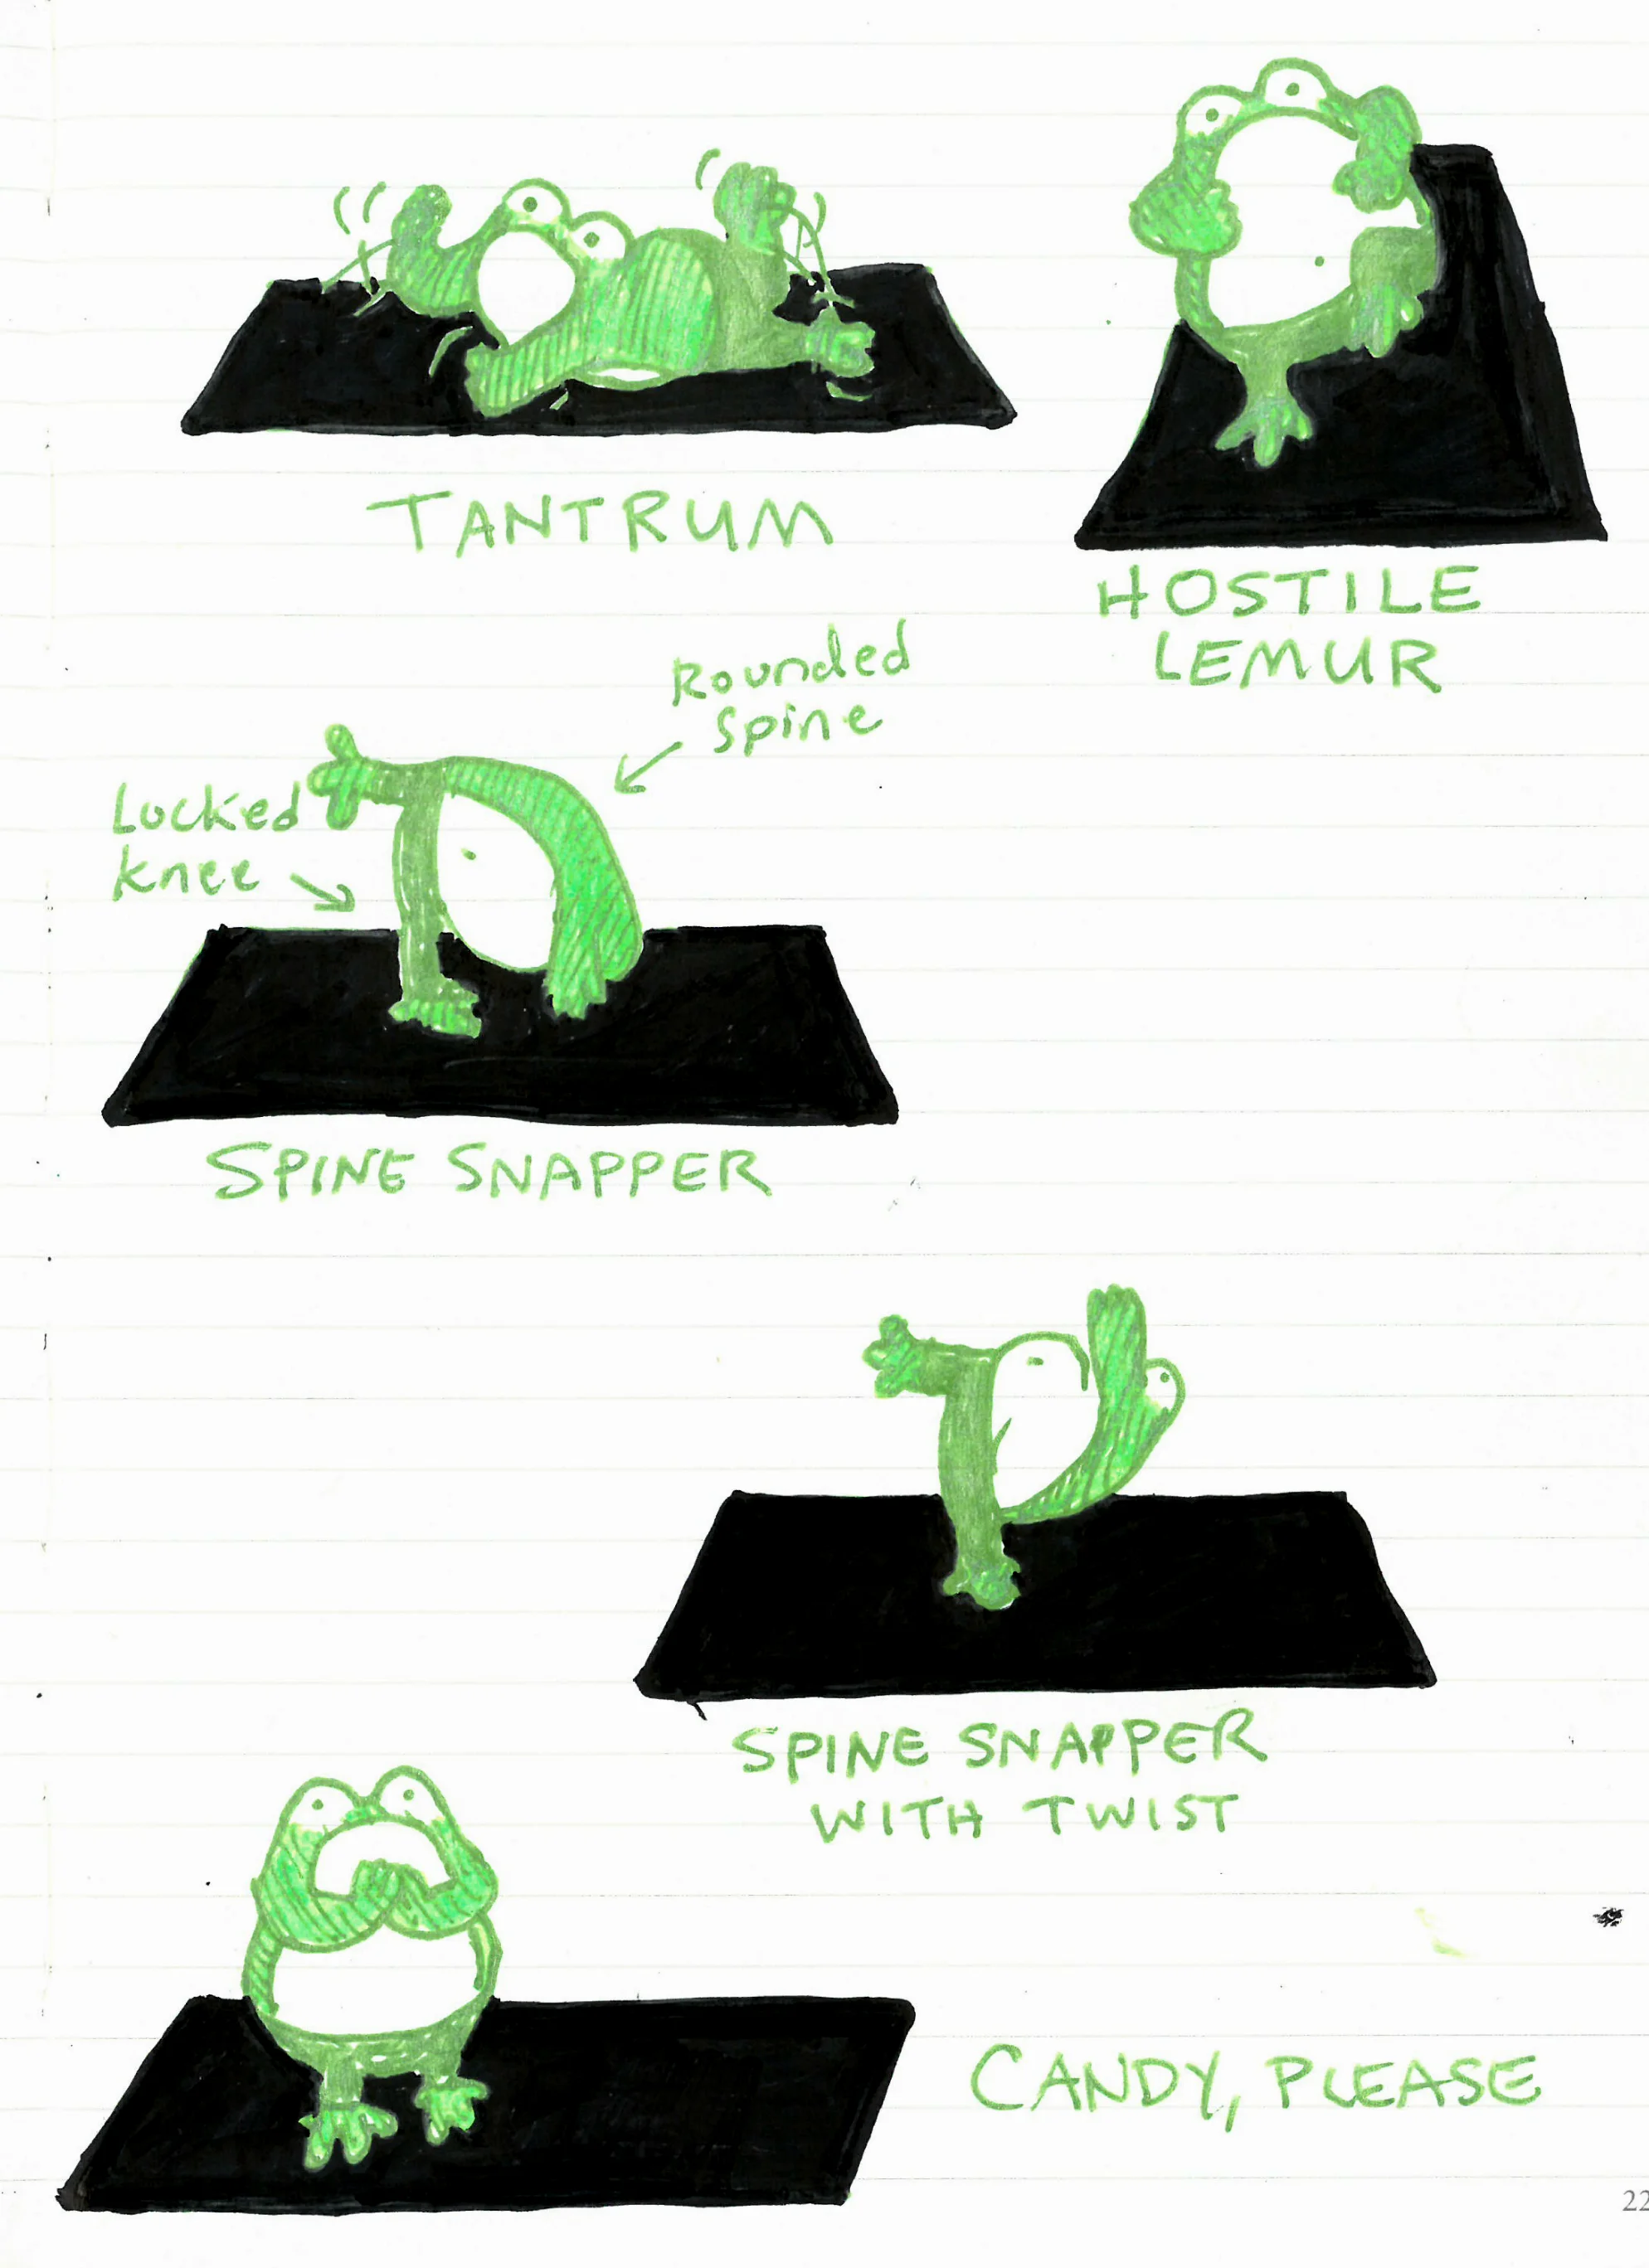 TANTRUM
HOSTILE
LEMUR
Rounded
spine
Locked
knee
SPINE SNAPPER
SPINE SNAPPER
WITH TWIST
CANDY, PLEASE
22